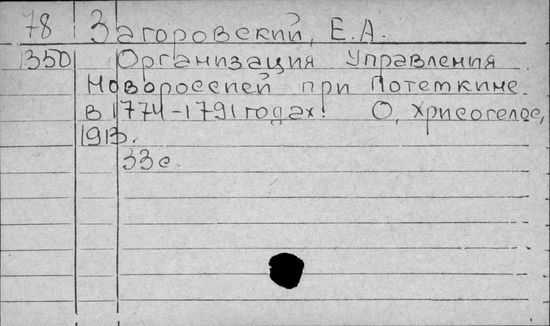 78 Загоровский, Е.А.
1350 Организация Управления
Новороссией при Потемкине
в 1774-1791 годах. О, Хрисогелос,
1913.
33с.